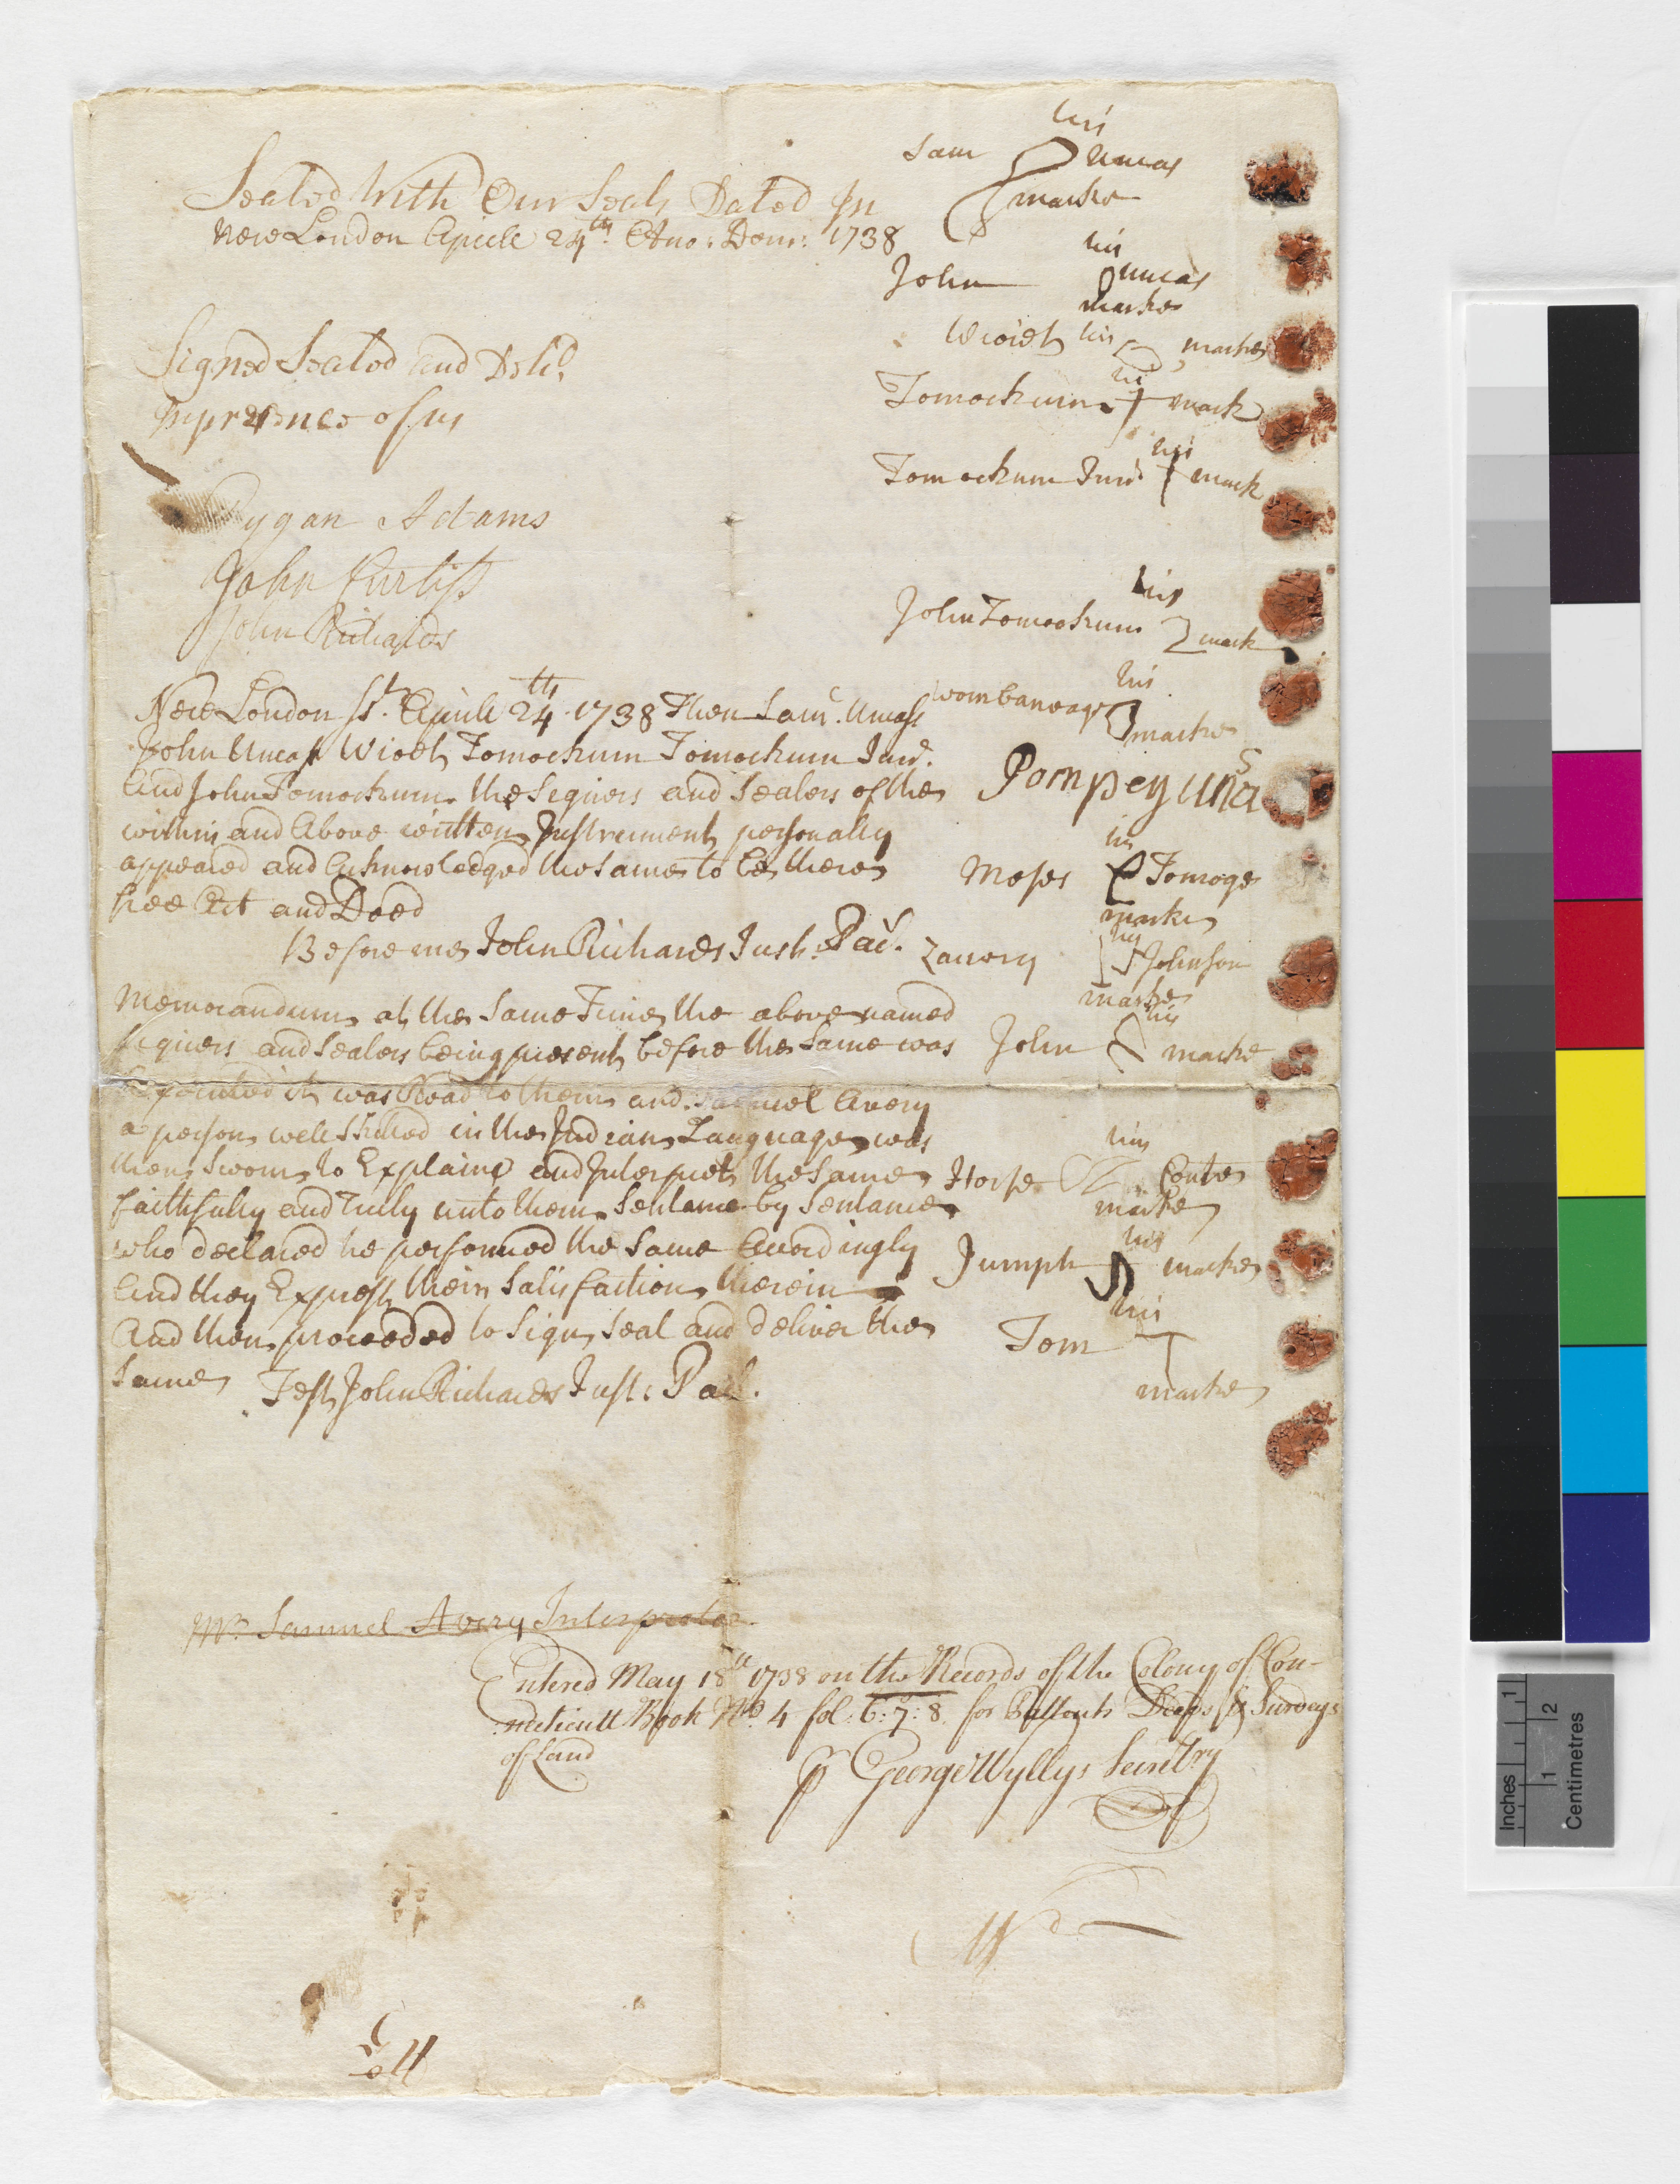 Sealed With Our Seals Dated In
New London Aprill 24th. Ano: Dom: 1738
Signed Sealed and Deld.
Inpresence of us
Pygan Adams
John Curtiss
John Richards
Sam his Uncas
marke
John his Uncas
marke
Wioeh his marke
Tomockum his mark
Tomockum Junr. his mark
John Tomockum his mark
Wombaneage his
marke
Pompey Unas
Moses his Tomoge
marke
Zacrery his Johnson
marke
John his marke
Horse his Coute
marke
Jumph his marke
Tom his
marke
New London Ss. Aprill 24th 1738 Then Samll. Uncass
John Uncass Wioeh Tomockum Tomockum Junr.
And John Tomockum the Signers and Sealers of the
within and Above written Instrument personally
appeared and Acknowledged the same to be there
free Act and Deed
Before me John Richards Just. Pac.
Memorandum at the Same Time the above named
Signers and Sealers being present before the Same was
Executed it was Read to them and Samuel Avery
a person well Skilled in the Indian Language was
then Sworn to Explaine and Interpret the Same
faithfully and Truly unto them Sentance by Sentance
who declared he performed the Same Accordingly
And they Express their Satisfaction therein
And then proceeded to Sign, Seal and deliver the
Same Test John Richards Just: Pac.
Mr. Samuel Avery Interpretor
Entered May 18th 1738 on the Records of the Colony of Con-
necticutt Book No. 4 fol: 6: 7: 8 for Pattents Deeds & Surveys
of Land
p George Wyllys Secretry